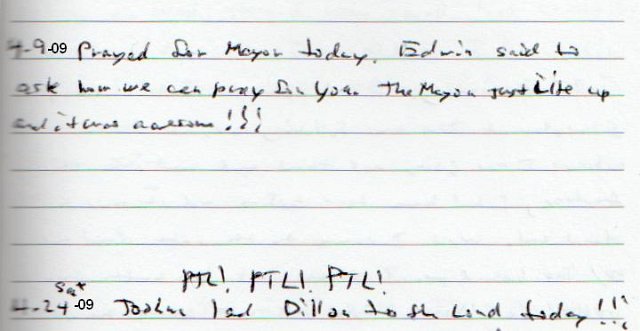 4-9-09 Prayed for Mayor today. Edwin said to
ask how we can pray for you. The Mayor just Lite up
and it was awesome!!!
PTL! PTL! PTL!
Sat
4-24-09 Joshua led Dillon to the Lord today!!!